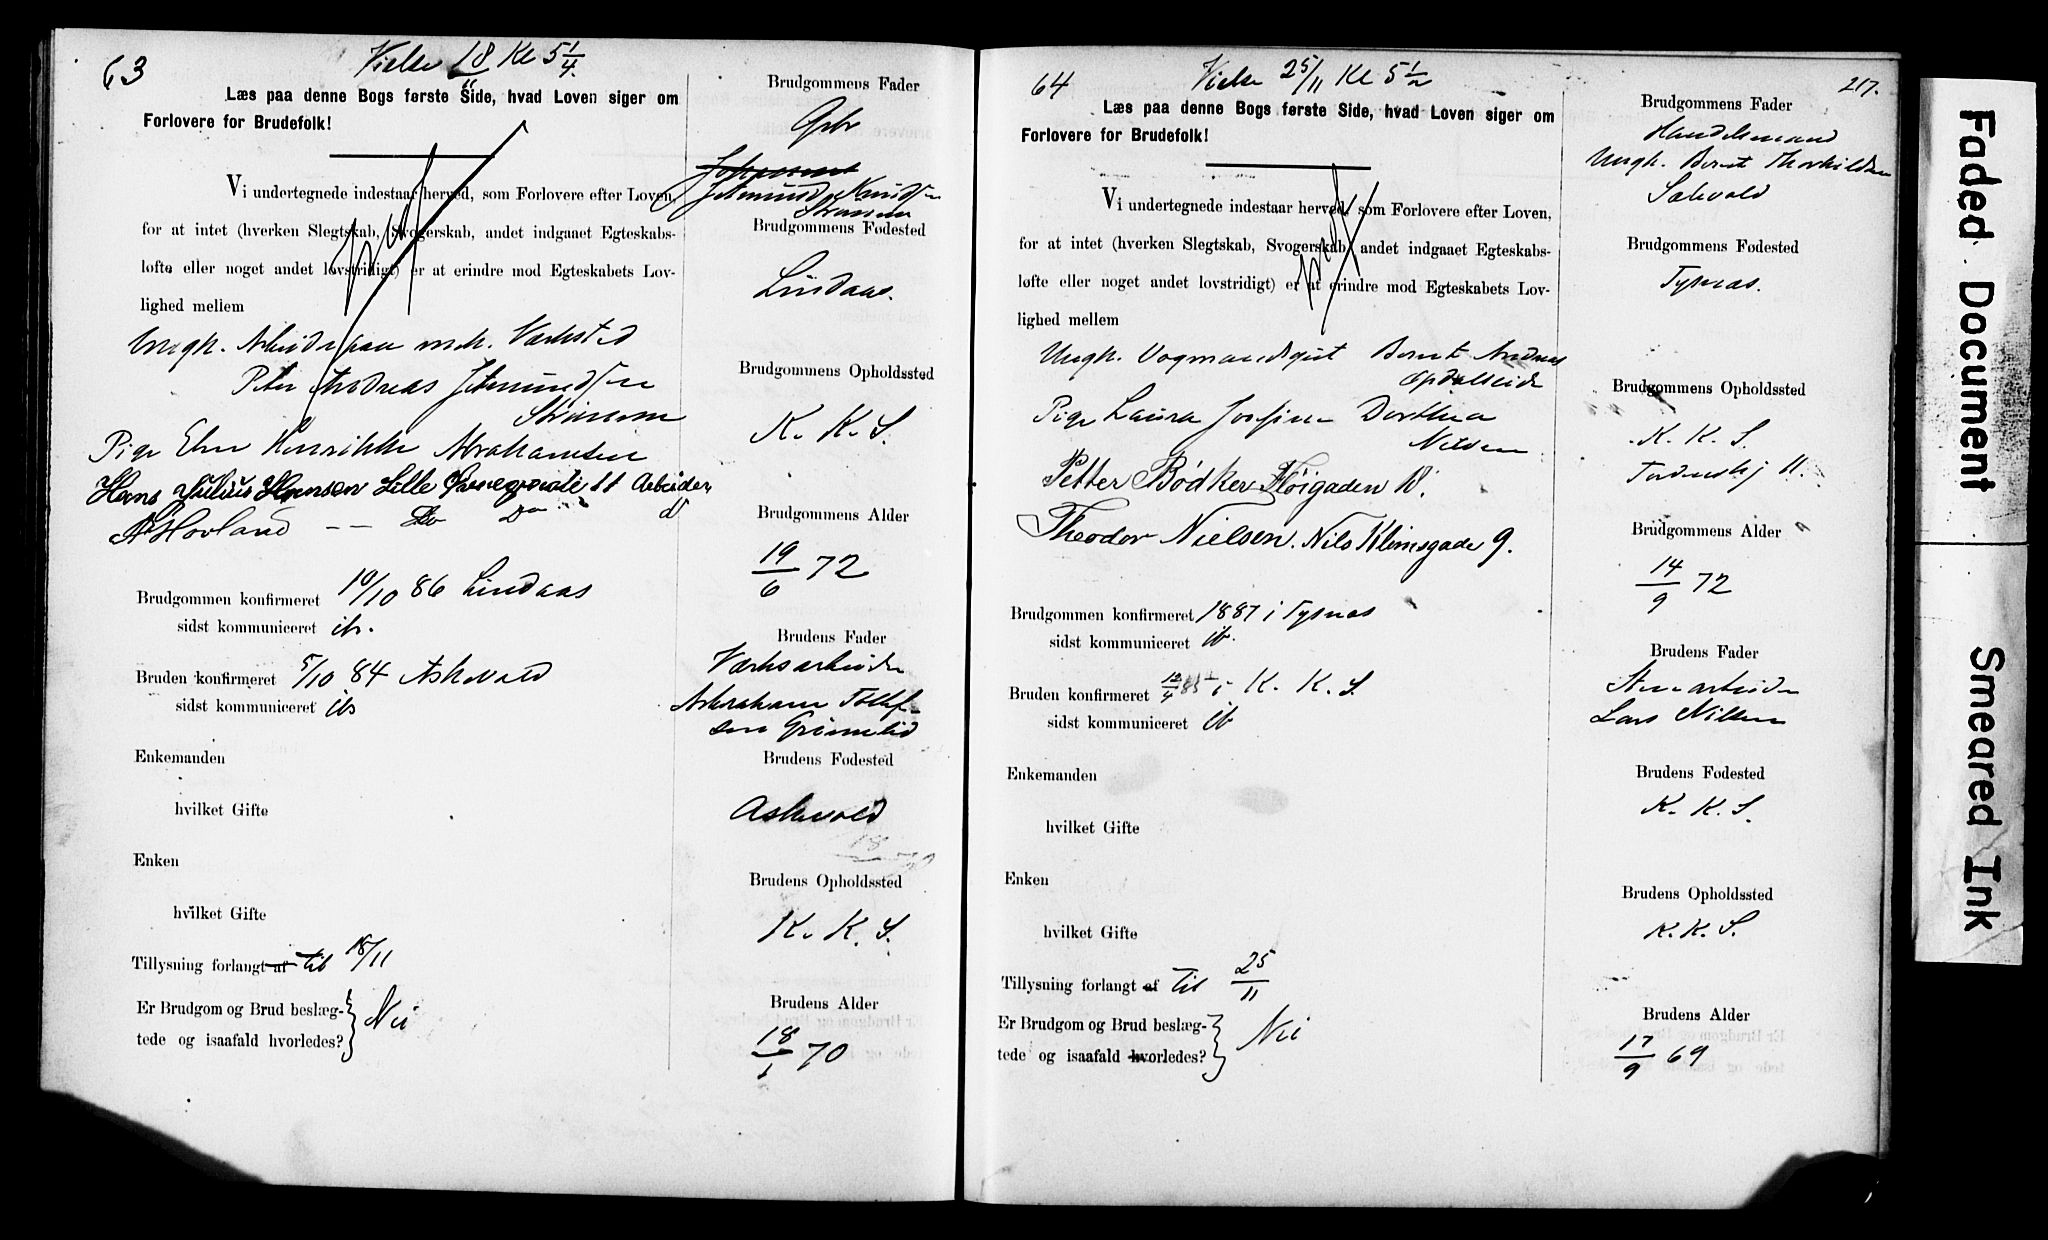 63
Vielse 18/11 Kl 5 1/4.
Læs paa denne Bogs første Side, hvad Loven siger om
Forlovere for Brudefolk!
Vi undertegnede indestaar herved, som Forlovere efter Loven,
for at intet (hverken Slegtskab, Svogerskab, andet indgaaet Egteskabs-
løfte eller noget andet lovstridigt) er at erindre mod Egteskabets Lov-
lighed mellem
Ungk. Arbeider paa mek. Værksted
Peter Andreas Jetmundsen
Strømsnes
Pige Elen Henrikke Abrahamsen
Hans Julius Hansen Lille 11 Arbeider
A Hovland -- Do Do d
Brudgommen konfirmeret 10/10 86 Lindaas
sidst kommuniceret ib.
Bruden konfirmeret 5/10 84 Askevold
sidst kommuniceret ib
Enkemanden
hvilket Gifte
Enken
hvilket Gifte
Tillysning forlangt af til 18/11
Er Brudgom og Brud beslæg-
tede og isaafald hvorledes? Nei
Brudgommens Fader
Gbr
Jetmund Knudsen
Brudgommens Fødested
Lindaas.
Brudgommens Opholdssted
K. K. S.
Brudgommens Alder
19/6 72
Brudens Fader
Værksarbeider
Abraham Tollef-
sen Grimelid
Brudens Fødested
Askevold
Brudens Opholdssted
K. K. S.
Brudens Alder
18/1 70
64
Vielse 25/11 Kl 5 1/2
217.
Læs paa denne Bogs første Side, hvad Loven siger om
Forlovere for Brudefolk!
Vi undertegnede indestaar herved, som Forlovere efter Loven,
for at intet (hverken Slegtskab, Svogerskab, andet indgaaet Egteskabs-
løfte eller noget andet lovstridigt) er at erindre mod Egteskabets Lov-
lighed mellem
Ungk. Vognmandsgut Bernt Andreas
Opdalseide
Pige Laura Josefine Dorthea
Nilsen
Petter Bødker Fløigaden 10.
Theodor Nielsen. Nils Klimsgade 9.
Brudgommen konfirmeret 1887 i Tysnæs
sidst kommuniceret ib.
Bruden konfirmeret 12/4 85 i K. K. S.
sidst kommuniceret ib
Enkemanden
hvilket Gifte
Enken
hvilket Gifte
Tillysning forlangt af til 25/11
Er Brudgom og Brud beslæg-
tede og isaafald hvorledes? Nei
Brudgommens Fader
Handelsmand
Ungk. Bernt Thorkildsen
Sælevold
Brudgommens Fødested
Tysnæs.
Brudgommens Opholdssted
K. K. S.
Tordenskj 11.
Brudgommens Alder
14/9 72
Brudens Fader
Stenarbeider
Lars Nilsen
Brudens Fødested
K. K. S.
Brudens Opholdssted
K. K. S.
Brudens Alder
17/9 69
Faded Document
Smeared Ink